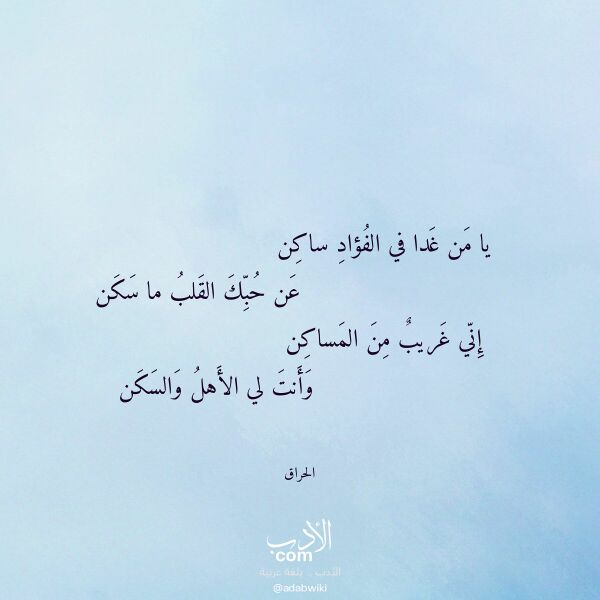 يا مَن غَدا في الفُؤادِ ساكِن
عَن حُبِّكَ القَلبُ ما سَكَن
إِنّي غَريبٌ مِنَ المَساكِن
وَأَنتَ لي الأَهلُ وَالسَكَن
الحراق
الأدب
com
الأدب .. بلغة عربية
@adabwiki